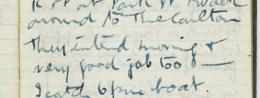 around to The Carlton
They intend moving &
very good job too —
I catch 6 pm boat.